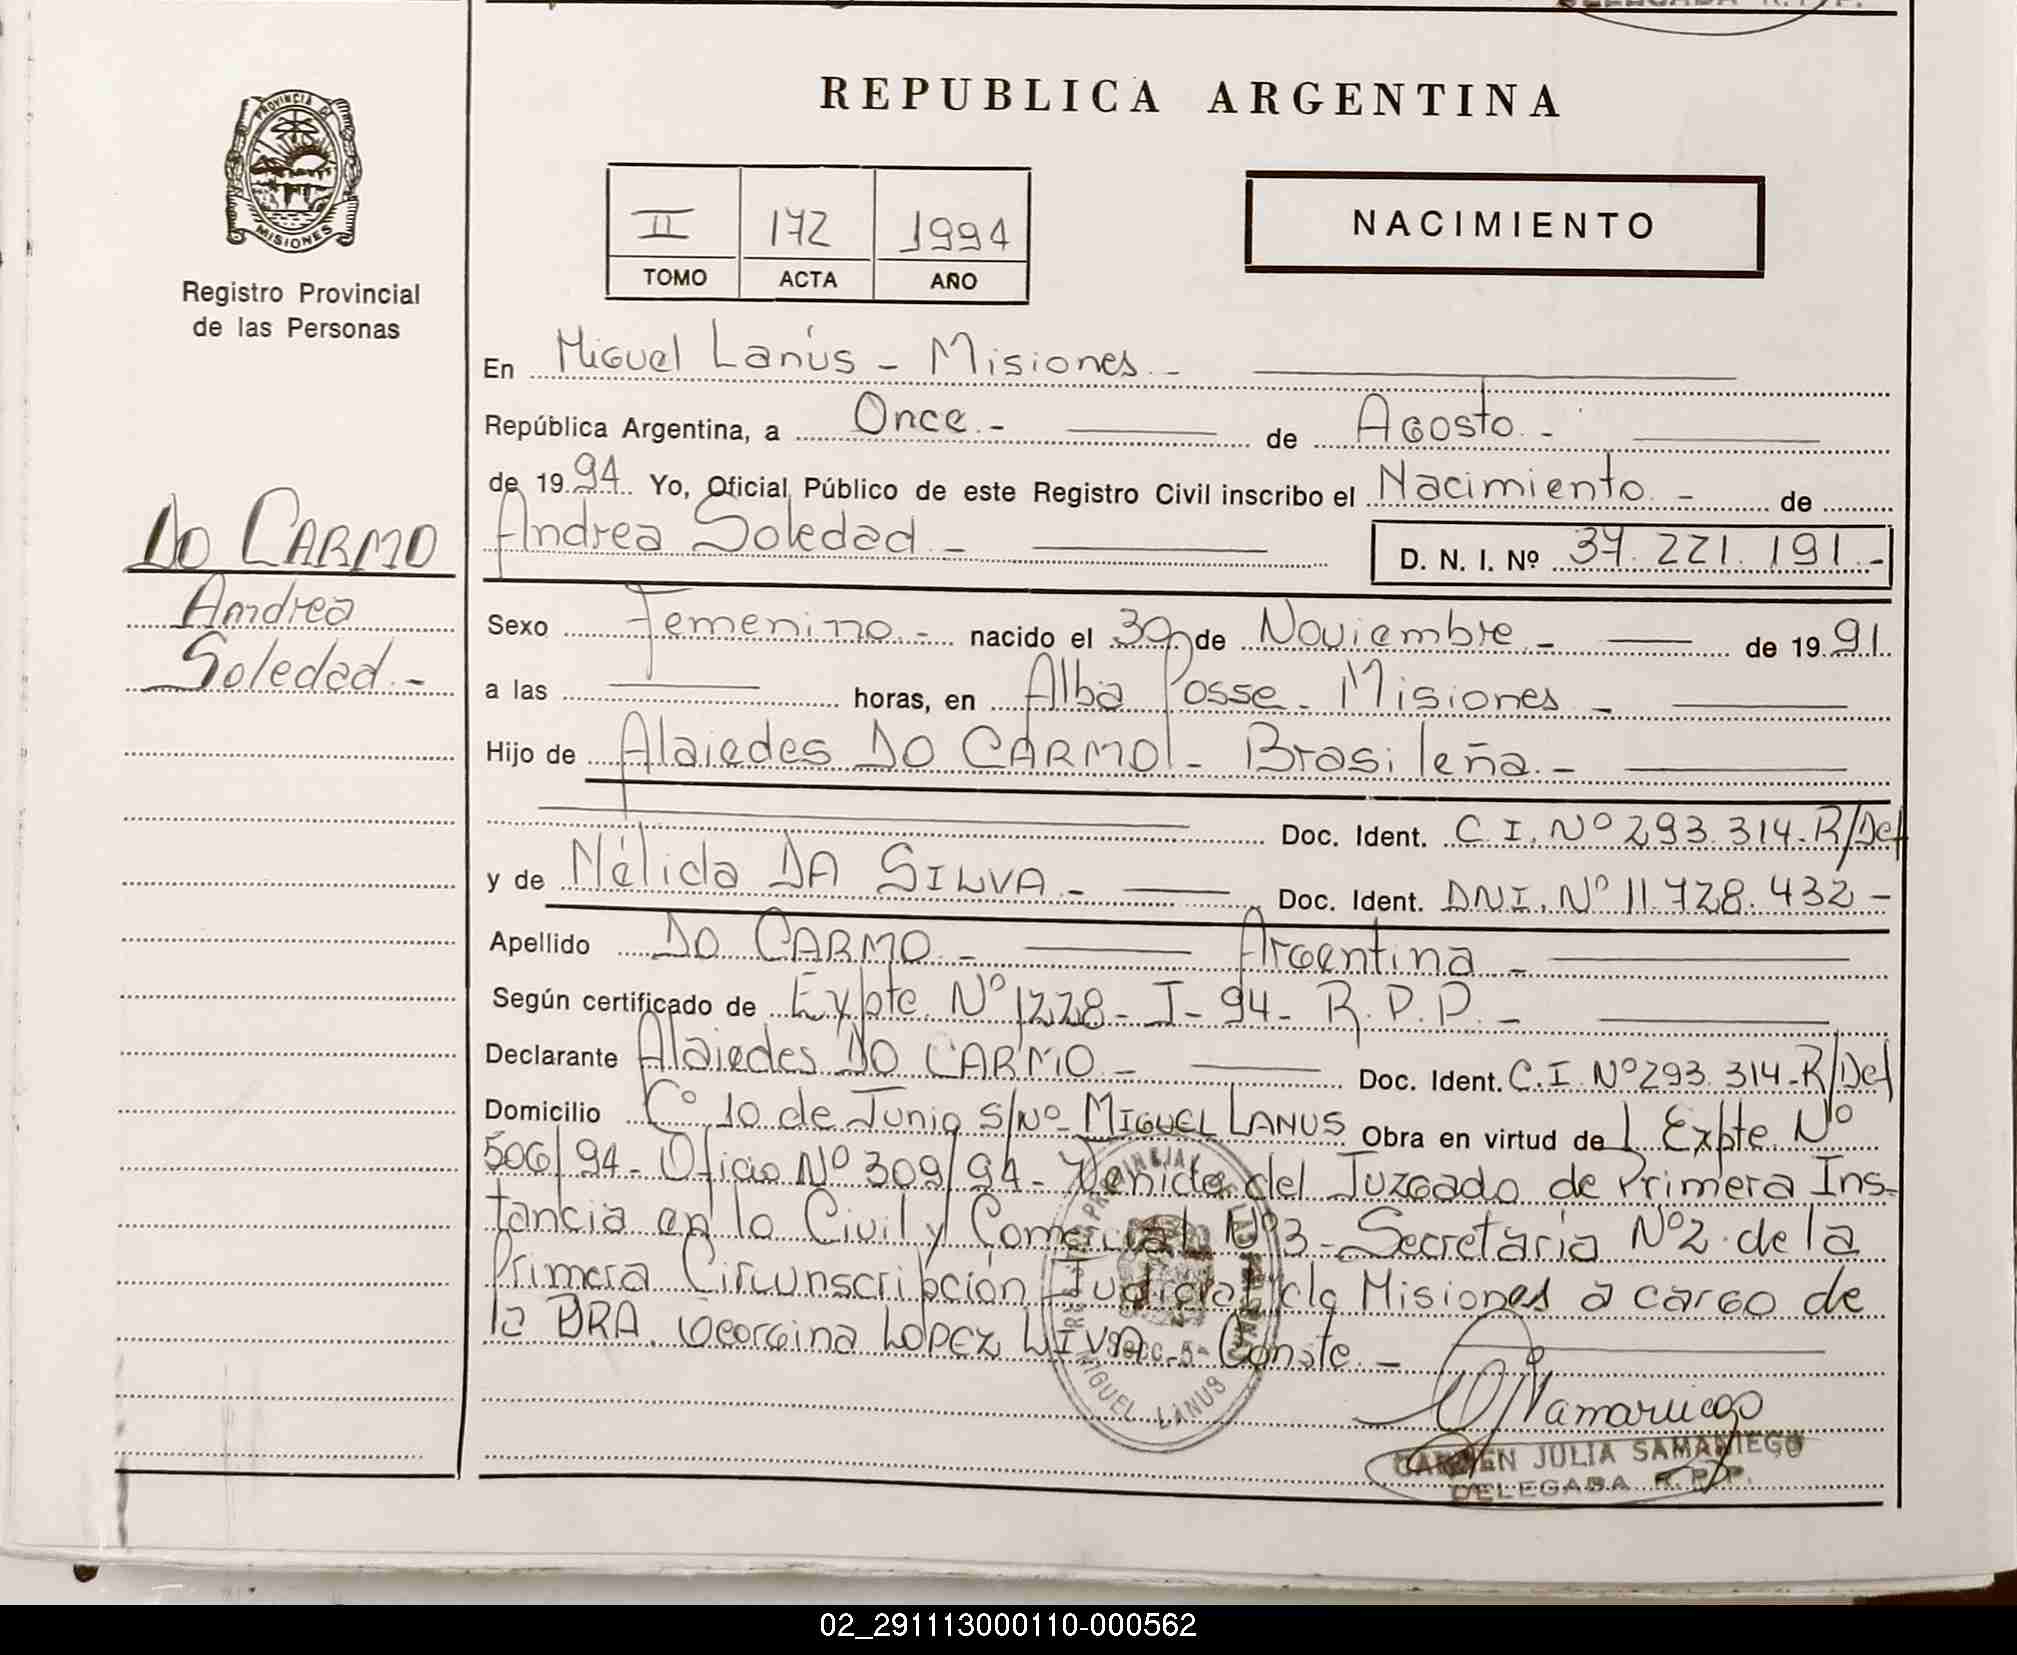 REPUBLICA ARGENTINA
PROVINCIA DE
MISIONES
Registro Provincial
de las Personas
II 172 1994
TOMO ACTA AÑO
NACIMIENTO
En Miguel Lanús - Misiones -
República Argentina, a Once.- de Agosto.-
de 1994. Yo, Oficial Público de este Registro Civil inscribo el Nacimiento.- de
Andrea Soledad.-
D. N. I. Nº 37.221.191.-
DO CARMO
Andrea
Soledad.-
Sexo Femenino.- nacido el 30 de Noviembre.- de 1991.
a las horas, en Alba Posse - Misiones -
Hijo de Alaiedes DO CARMO - Brasileña.-
Doc. Ident. C.I. Nº 293.314-R/Def
y de Nélida DA SILVA.- Doc. Ident. DNI. Nº 11.728.432-
Apellido DO CARMO.- Argentina.-
Según certificado de Expte. Nº 1228-I-94- R.P.P.-
Declarante Alaiedes DO CARMO.- Doc. Ident. C.I. Nº 293.314-R/Def
Domicilio Cº 10 de Junio S/Nº- MIGUEL LANUS Obra en virtud de Expte. Nº
506/94- Oficio Nº 309/94- Venida del Juzgado de Primera Ins-
tancia en lo Civil y Comercial Nº3 - Secretaria Nº2 de la
Primera Circunscripción Judicial de Misiones a cargo de
la DRA. Georgina LOPEZ LIVA. Conste.-
MIGUEL LANUS
CARMEN JULIA SAMANIEGO
DELEGADA R.P.P.
02_291113000110-000562